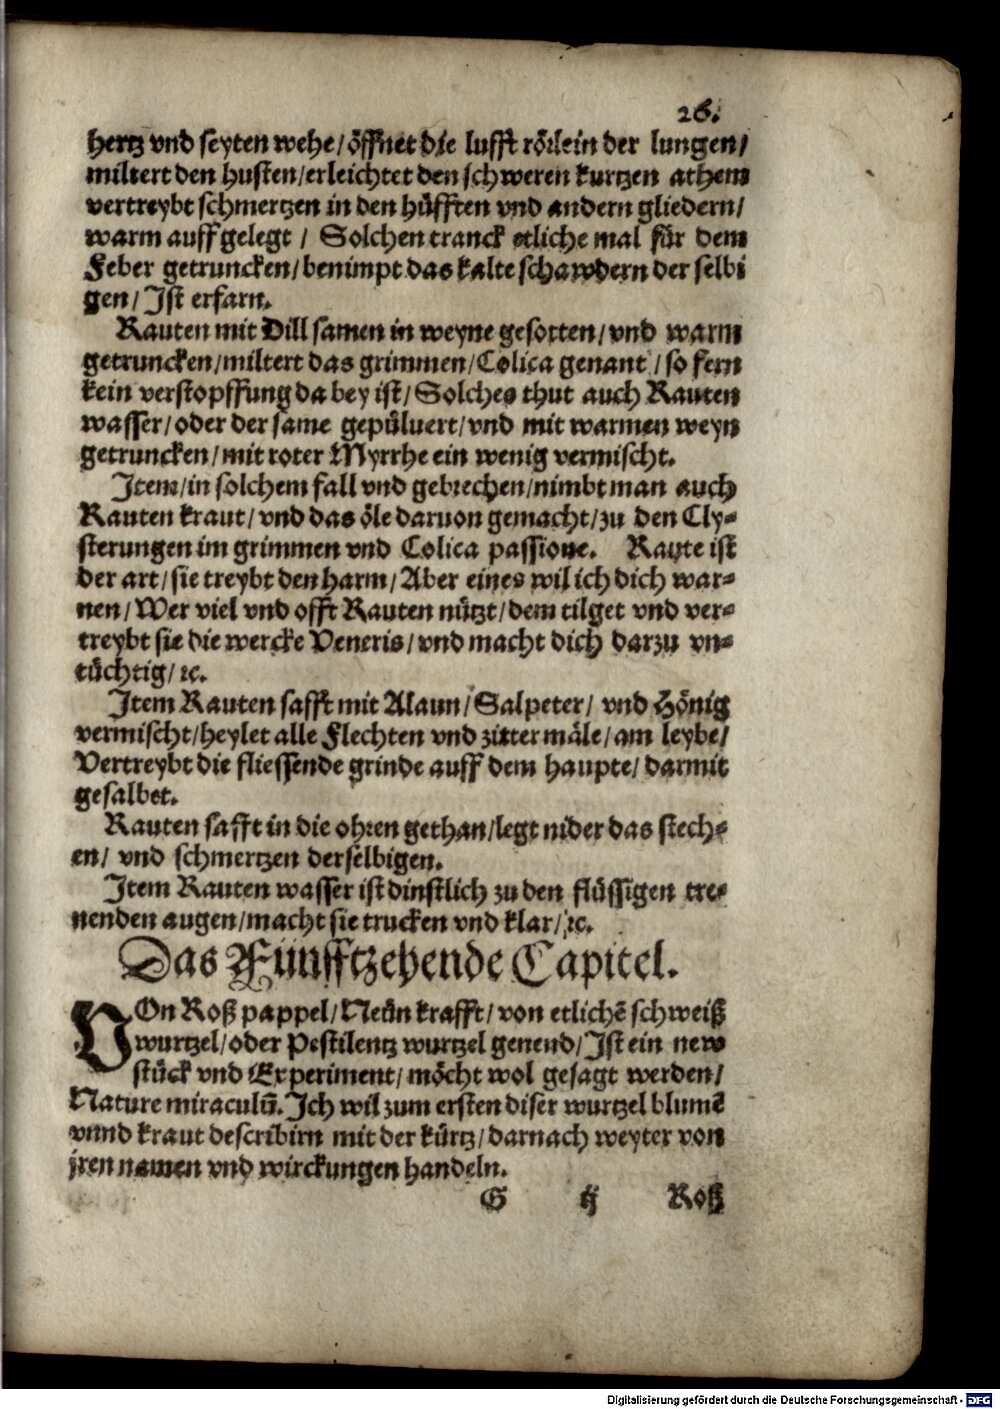 26.
hertz vnd seyten wehe/öffnet die lufft rörlein der lungen/
miltert den husten/erleichtet den schweren kurtzen athem
vertreybt schmertzen in den hüfften vnd andern gliedern/
warm auff gelegt / Solchen tranck etliche mal für dem
Feber getruncken/benimpt das kalte schawdern der selbi
gen/ Ist erfarn.
Rauten mit Dill samen in weyne gesotten/vnd warm
getruncken/miltert das grimmen/Colica genant / so fern
kein verstopffung da bey ist/Solches thut auch Rauten
wasser/oder der same gepülvert/vnd mit warmen weyn
getruncken/mit roter Myrrhe ein wenig vermischt.
Item/in solchem fall vnd gebrechen/nimbt man auch
Rauten kraut/vnd das öle daruon gemacht/zu den Cly-
sterungen im grimmen vnd Colica passione. Raute ist
der art/sie treybt den harm/Aber eines wil ich dich war-
nen/Wer viel vnd offt Rauten nützt/dem tilget vnd ver-
treybt sie die wercke Veneris/vnd macht dich darzu vn-
tüchtig/ ꝛc.
Item Rauten safft mit Alaun/Salpeter/ vnd Hönig
vermischt/heylet alle Flechten vnd zittermäle/am leybe/
Vertreybt die fliessende grinde auff dem haupte/darmit
gesalbet.
Rauten safft in die ohren gethan/legt nider das stech-
en/ vnd schmertzen derselbigen.
Item Rauten wasser ist dinstlich zu den flüssigen tre-
nenden augen/macht sie trucken vnd klar/ꝛc.
Das Fünfftzehende Capitel.
VOn Roß pappel/Neün krafft/von etlichē schweiß
wurtzel/oder Pestilentz wurtzel genend/Ist ein new
stück vnd Experiment/möcht wol gesagt werden/
Nature miraculū. Ich wil zum ersten diser wurtzel blumē
vnnd kraut describirn mit der kürtz/darnach weyter von
jren namen vnd wirckungen handeln.
G ij Roß
Digitalisierung gefördert durch die Deutsche Forschungsgemeinschaft - DFG